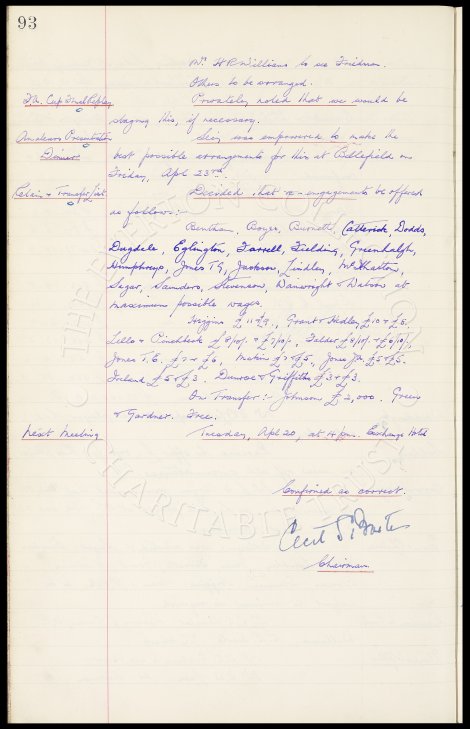 93
Mr. H R Williams to see Friedman.
Others to be arranged.
F.A. Cup Final Replay
Privately noted that we would be
staging this, if necessary.
Amateurs Presentation
Dinner
Secy was empowered to make the
best possible arrangements for this at Bellefield on
Friday, Apl 23rd.
Retain & Transfer List
Decided that re-engagements be offered
as follows:-
Bentham, Boyes, Burnett, Catterick, Dodds,
Dugdale, Eglington, Farrell, Fielding, Greenhalgh,
Humphreys, Jones TG, Jackson, Lindley, McIlhatton,
Sagar, Saunders, Stevenson, Wainwright & Watson at
maximum possible wages.
Higgins £11 & 9. Grant & Hedley £10 & £8.
Lello & Pinchbeck £8/10/- & £7/10/-. Falder £8/10/- & £6/10/-
Jones T.E. £7 & £6, Makin £7 & £5, Jones Jn. £5 & £5.
Ireland £5 & £3. Dunroe & Griffiths £3 & £3.
On Transfer:- Johnson £2,000. Green
& Gardner. Free.
Next Meeting
Tuesday, Apl 20, at 4 pm. Exchange Hotel
Confirmed as correct.
Cecil S. Baxter
Chairman
THE EVERTON COLLECTION
CHARITABLE TRUST